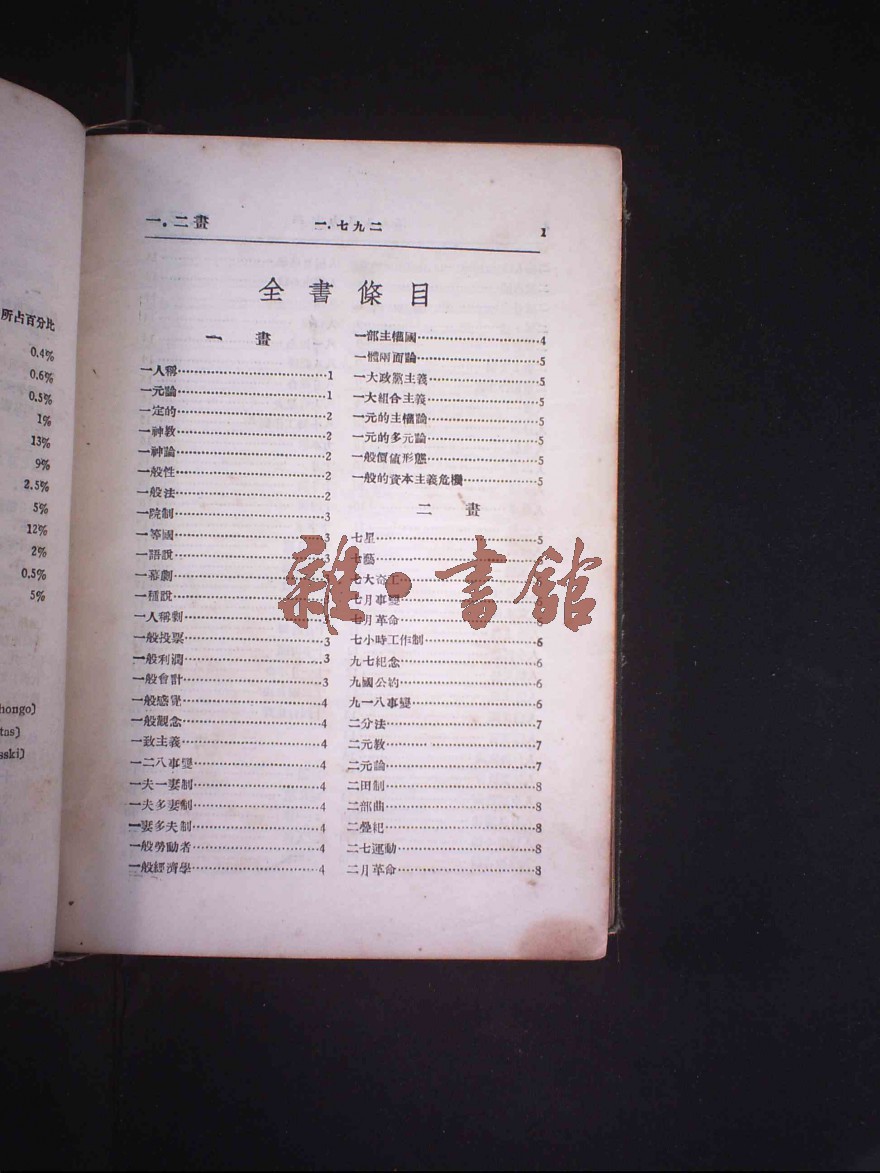 所占百分比
0.4%
0.6%
0.5%
1%
13%
9%
2.5%
5%
12%
2%
0.5%
5%
hongo)
tas)
sski)
一.二畫 一.七九二 1
全書條目
一畫
一人稱 1
一元論 1
一定的 2
一神教 2
一神論 2
一般性 2
一般法 2
一院制 3
一等國 3
一語說 3
一幕劇
一種說
一人稱劇
一般投票 3
一般利潤 3
一般會計 3
一般感覺 4
一般觀念 4
一致主義 4
一二八事變 4
一夫一妻制 4
一夫多妻制 4
一妻多夫制 4
一般勞動者 4
一般經濟學 4
一部主權國 4
一體兩面論 5
一大政黨主義 5
一大組合主義 5
一元的主權論 5
一元的多元論 5
一般價值形態 5
一般的資本主義危機 5
二畫
七星 5
七藝
七大奇工
七月事變
七月革命 6
七小時工作制 6
九七紀念 6
九國公約 6
九一八事變 6
二分法 7
二元教 7
二元論 7
二田制 8
二部曲 8
二疊紀 8
二七運動 8
二月革命 8
雜·書館